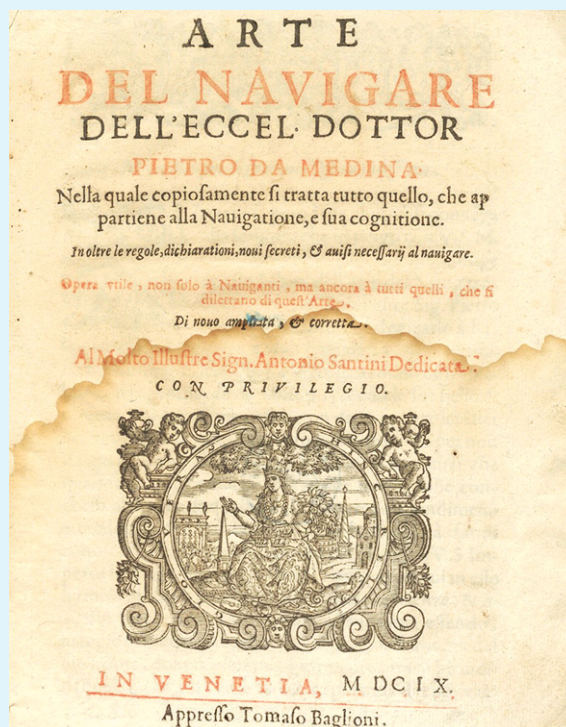 ARTE
DEL NAVIGARE
DELL'ECCEL. DOTTOR
PIETRO DA MEDINA.
Nella quale copioſamente ſi tratta tutto quello, che ap
partiene alla Nauigatione, e ſua cognitione.
In oltre le regole, dichiarationi, noui ſecreti, & auiſi neceſſarij al nauigare.
Opera vtile, non ſolo à Nauiganti, ma ancora à tutti quelli, che ſi
dilettano di queſt'Arte.
Di nouo ampliata, & corretta.
Al Molto Illuſtre Sign. Antonio Santini Dedicata.
CON PRIVILEGIO.
IN VENETIA, MDCIX.
Appreſſo Tomaſo Baglioni.